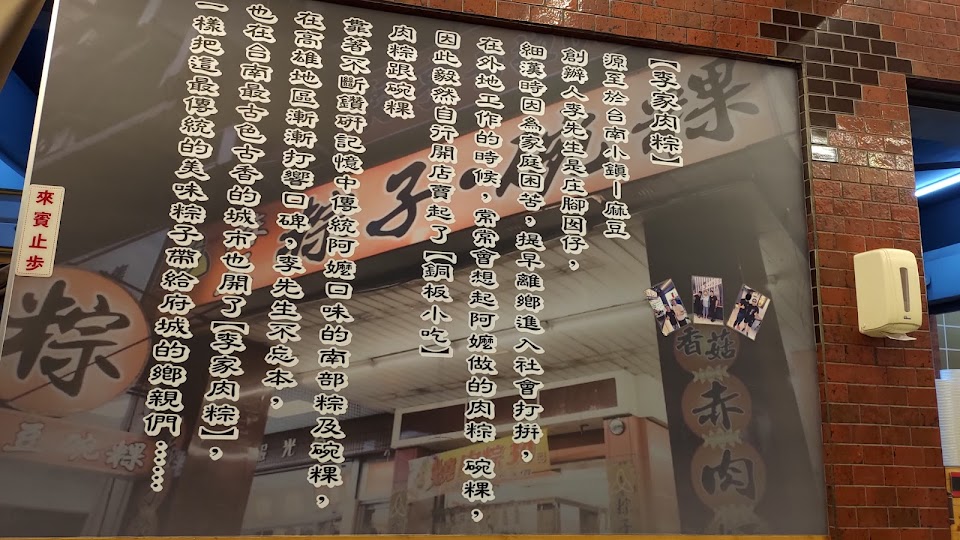 【李家肉粽】
源至於台南小鎮—麻豆
創辦人李先生是庄腳囝仔，
細漢時因為家庭困苦，提早離鄉進入社會打拼，
在外地工作的時候，常常會想起阿嬤做的肉粽 碗粿，
因此毅然自行開店賣起了【銅板小吃】
肉粽跟碗粿
靠著不斷鑽研記憶中傳統阿嬤口味的南部粽及碗粿，
在高雄地區漸漸打響口碑，李先生不忘本，
也在台南最古色古香的城市也開了【李家肉粽】，
一樣把這最傳統的美味粽子帶給府城的鄉親們……
來賓止步
粽子・碗粿
粽
香菇
赤肉